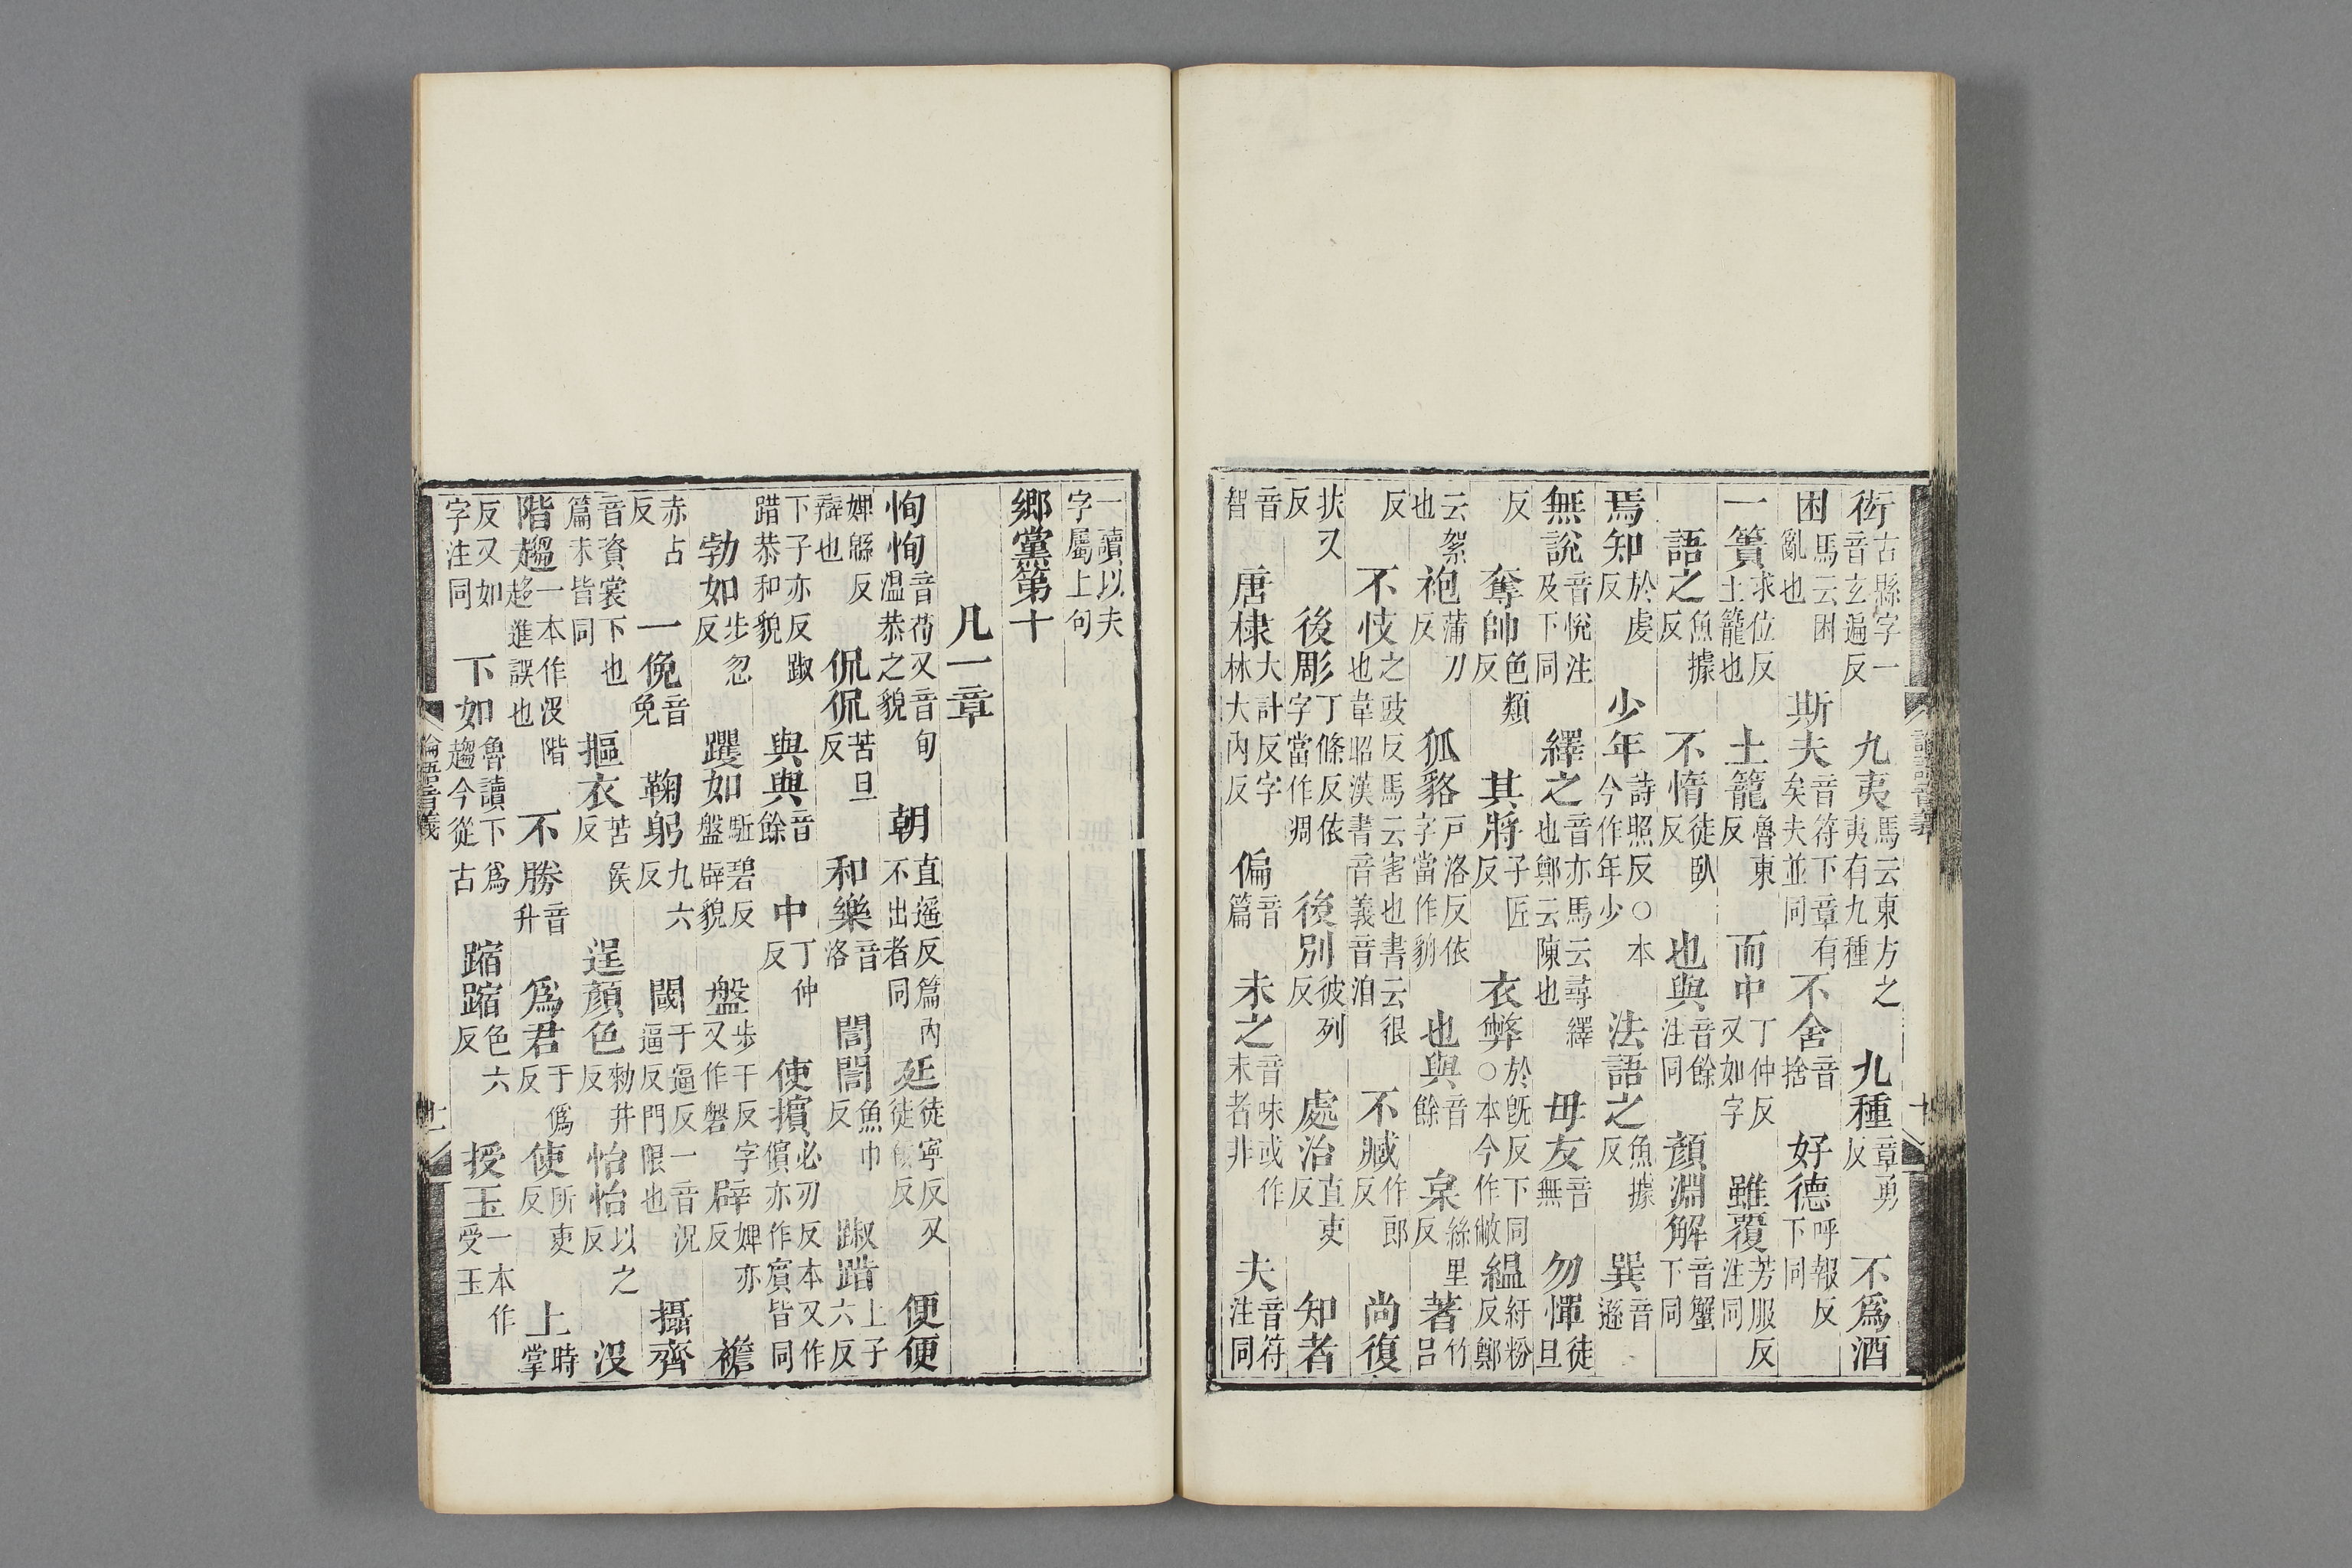 衒古縣字一音玄遍反 九夷馬云東方之夷有九種 九種章勇反 不爲酒
困馬云困亂也 斯夫音符下章有矣夫並同 不舍音捨 好德呼報反下同
一簣求位反土籠也 土籠魯東反 而中丁仲反又如字 雖覆芳服反注同
語之魚據反 不惰徒臥反 也與音餘注同 顏淵解音蟹下同
焉知於虔反 少年詩照反○本今作年少 法語之魚據反 巽音遜
無說音悅注及下同 繹之音亦馬云尋繹也鄭云陳也 毋友音無 勿憚徒旦
反 奪帥色類反 其將子匠反 衣弊於旣反下同○本今作敝 縕紆粉反鄭
云絮也 袍蒲刀反 狐貉戶洛反依字當作貈 也與音餘 枲絲里反 著竹呂
反 不忮之豉反馬云害也書云很也韋昭漢書音義音洎 不臧作郎反 尚復
扶又反 後彫丁條反依字當作凋 後別彼列反 處治直吏反 知者
音智 唐棣大計反字林大內反 偏音篇 未之音味或作末者非 夫音符注同
一讀以夫字屬上句
鄉黨第十
凡一章
恂恂音荀又音旬溫恭之貌 朝直遙反篇內不出者同 廷徒寧反又徒佞反 便便
婢緜反辯也 侃侃苦旦反 和樂音洛 誾誾魚巾反 踧踖上子六反
下子亦反踧踖恭和貌 與與音餘 中丁仲反 使擯必刃反本又作儐亦作賓皆同
勃如步忽反 躩如駈碧反盤辟貌 盤步干反字又作磐 辟婢亦反 襜
赤占反 一俛音免 鞠躬九六反 閾于逼反一音況逼反門限也 攝齊
音資裳下也篇末皆同 摳衣苦侯反 逞顏色勑井反 怡怡以之反 沒
階趨一本作沒階趨進誤也 不勝音升 爲君于僞反 使所吏反 上時掌
反又如字注同 下如魯讀下爲趨今從古 蹜蹜色六反 授玉一本作受玉
論語音義